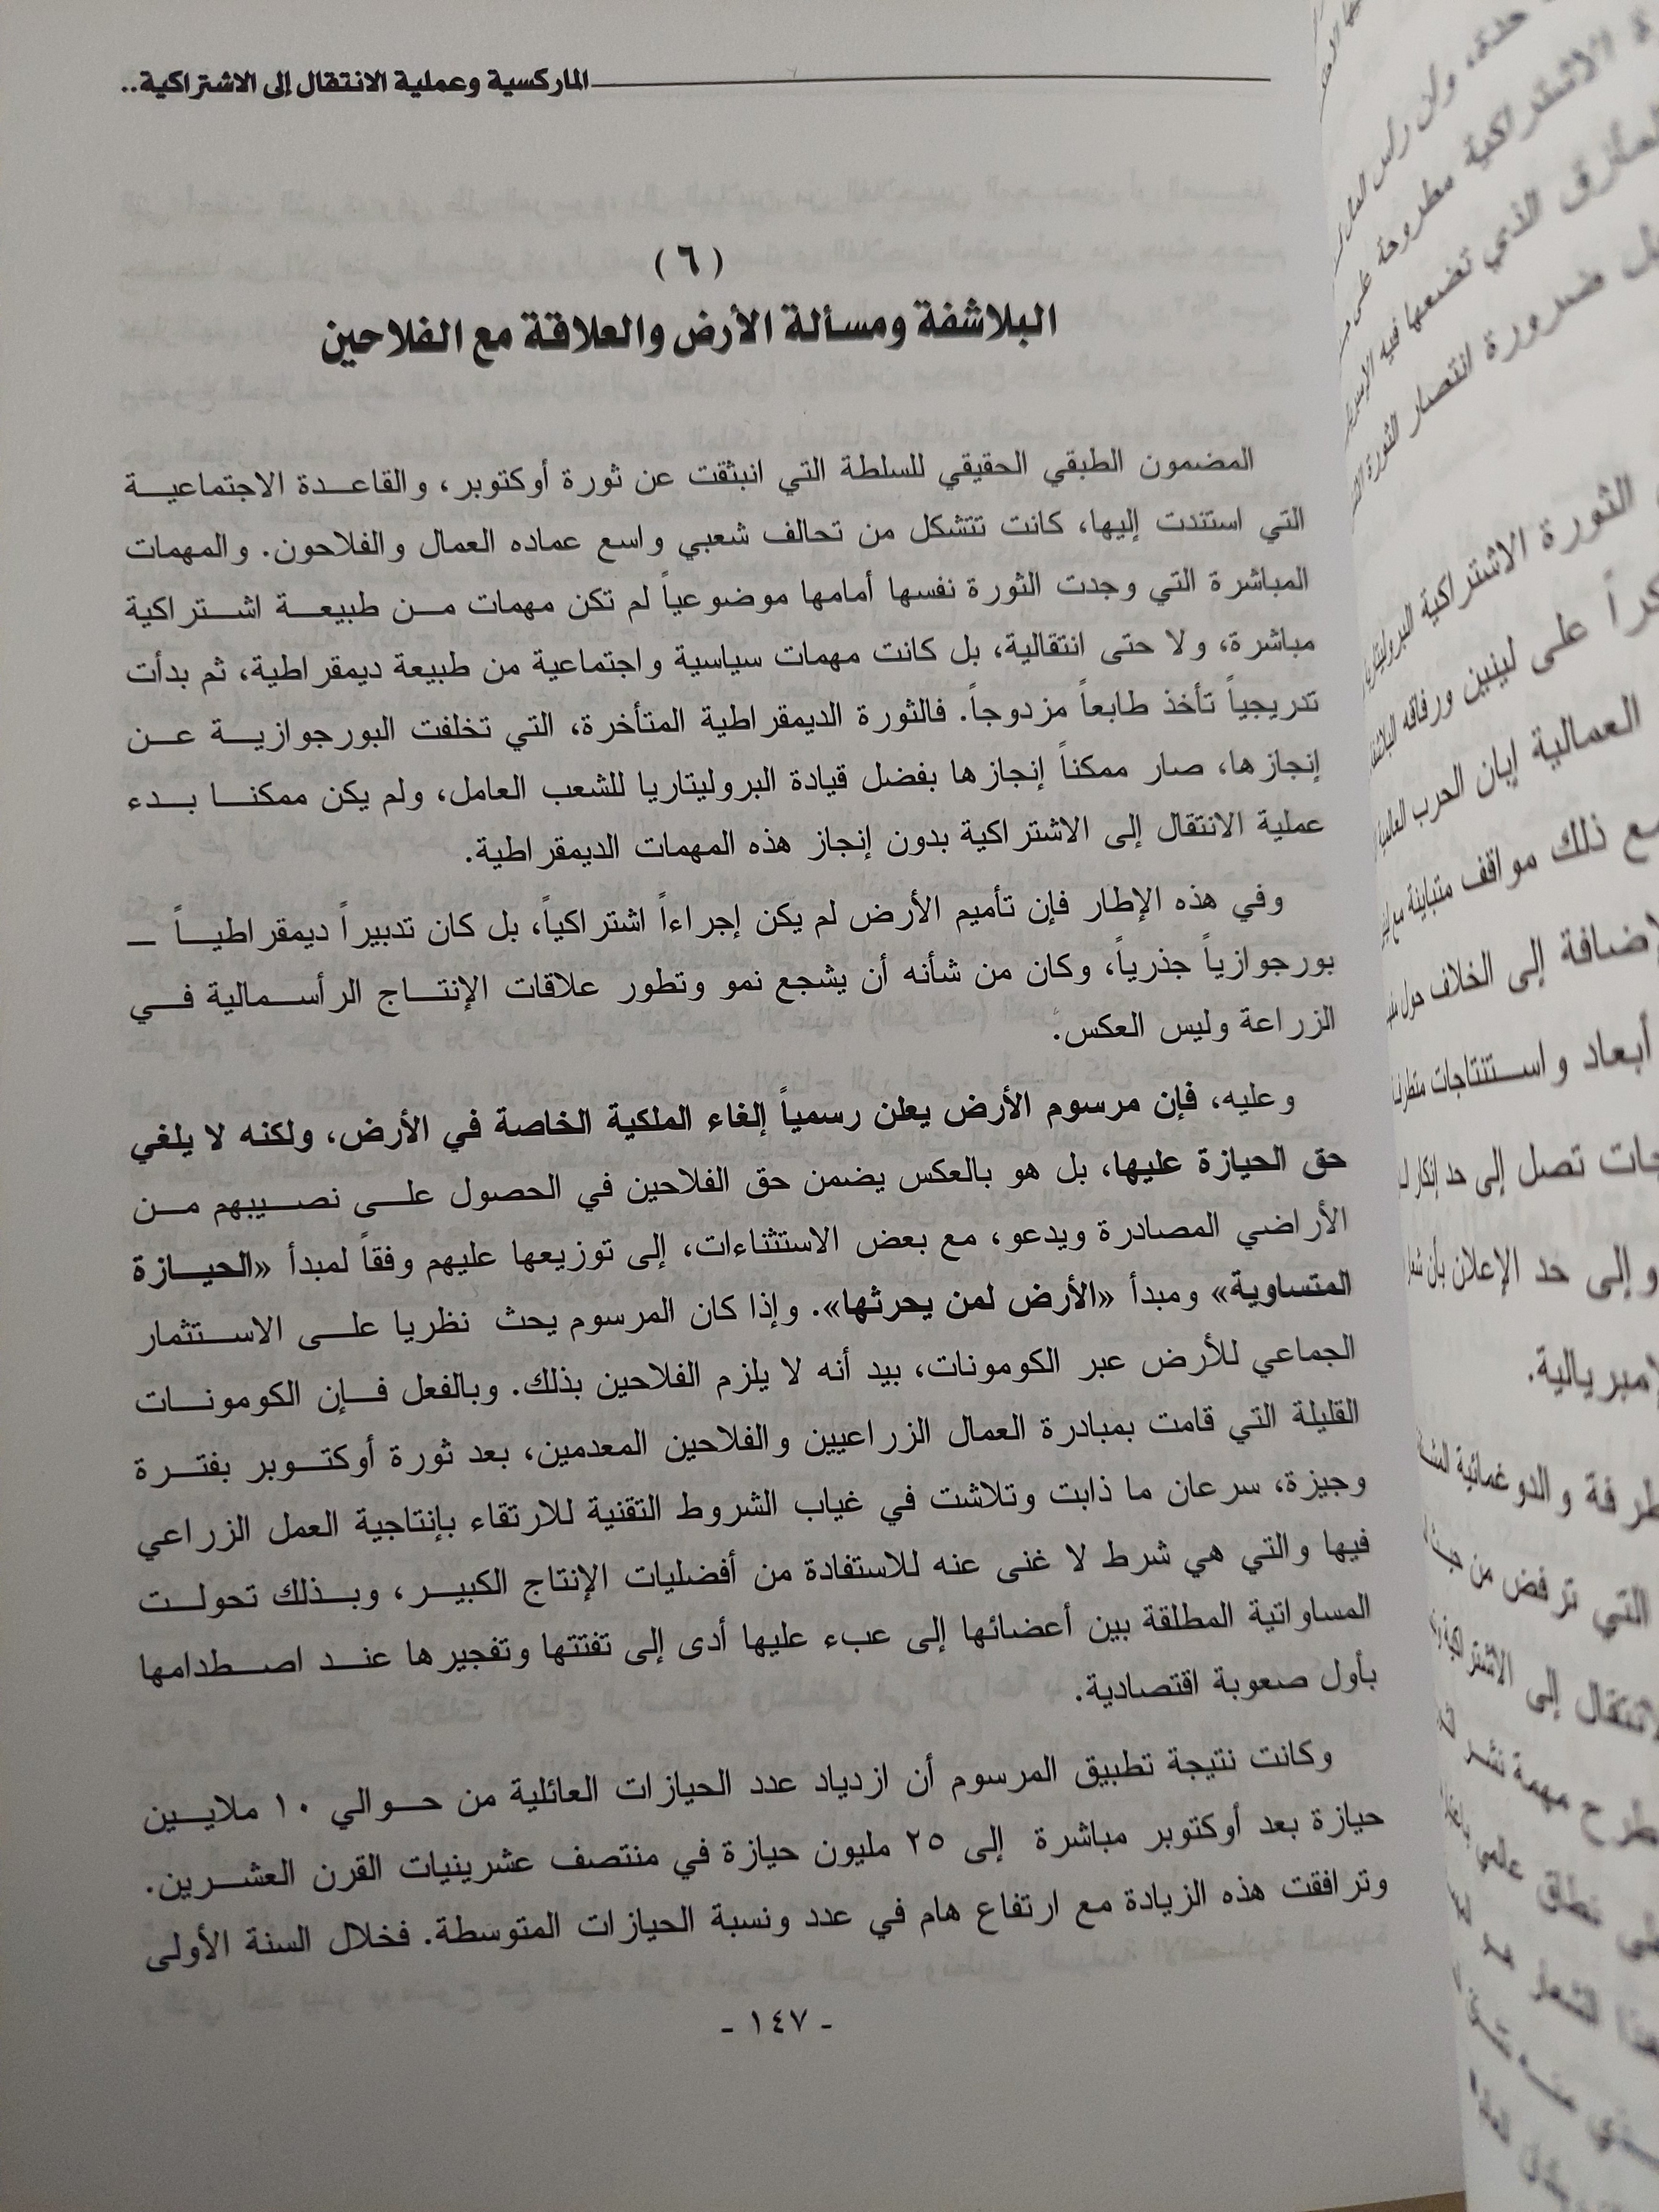 الماركسية وعملية الانتقال إلى الاشتراكية..
(٦)
البلاشفة ومسألة الأرض والعلاقة مع الفلاحين
المضمون الطبقي الحقيقي للسلطة التي انبثقت عن ثورة أوكتوبر، والقاعدة الاجتماعية
التي استندت إليها، كانت تتشكل من تحالف شعبي واسع عماده العمال والفلاحون. والمهمات
المباشرة التي وجدت الثورة نفسها أمامها موضوعياً لم تكن مهمات من طبيعة اشتراكية
مباشرة، ولا حتى انتقالية، بل كانت مهمات سياسية واجتماعية من طبيعة ديمقراطية، ثم بدأت
تدريجياً تأخذ طابعاً مزدوجاً. فالثورة الديمقراطية المتأخرة، التي تخلفت البورجوازية عن
إنجازها، صار ممكناً إنجازها بفضل قيادة البروليتاريا للشعب العامل، ولم يكن ممكنا بدء
عملية الانتقال إلى الاشتراكية بدون إنجاز هذه المهمات الديمقراطية.
وفي هذه الإطار فإن تأميم الأرض لم يكن إجراءاً اشتراكياً، بل كان تدبيراً ديمقراطياً —
بورجوازياً جذرياً، وكان من شأنه أن يشجع نمو وتطور علاقات الإنتاج الرأسمالية في
الزراعة وليس العكس.
وعليه، فإن مرسوم الأرض يعلن رسمياً إلغاء الملكية الخاصة في الأرض، ولكنه لا يلغي
حق الحيازة عليها، بل هو بالعكس يضمن حق الفلاحين في الحصول على نصيبهم من
الأراضي المصادرة ويدعو، مع بعض الاستثناءات، إلى توزيعها عليهم وفقاً لمبدأ «الحيازة
المتساوية» ومبدأ «الأرض لمن يحرثها». وإذا كان المرسوم يحث نظريا على الاستثمار
الجماعي للأرض عبر الكومونات، بيد أنه لا يلزم الفلاحين بذلك. وبالفعل فإن الكومونات
القليلة التي قامت بمبادرة العمال الزراعيين والفلاحين المعدمين، بعد ثورة أوكتوبر بفترة
وجيزة، سرعان ما ذابت وتلاشت في غياب الشروط التقنية للارتقاء بإنتاجية العمل الزراعي
فيها والتي هي شرط لا غنى عنه للاستفادة من أفضليات الإنتاج الكبير، وبذلك تحولت
المساواتية المطلقة بين أعضائها إلى عبء عليها أدى إلى تفتتها وتفجيرها عند اصطدامها
بأول صعوبة اقتصادية.
وكانت نتيجة تطبيق المرسوم أن ازدياد عدد الحيازات العائلية من حوالي ١٠ ملايين
حيازة بعد أوكتوبر مباشرة إلى ٢٥ مليون حيازة في منتصف عشرينيات القرن العشرين.
وترافقت هذه الزيادة مع ارتفاع هام في عدد ونسبة الحيازات المتوسطة. فخلال السنة الأولى
- ١٤٧ -
حدة، ولان رأس المال
ة الاشتراكية مطروحة على
المأزق الذي تضعها فيه
ل ضرورة انتصار الثورة
الثورة الاشتراكية
كراً على لينين ورفاقه
العمالية إبان الحرب
مع ذلك مواقف متباينة
لإضافة إلى الخلاف حول
أبعاد واستنتاجات
جات تصل إلى حد إنكار
وإلى حد الإعلان بأن
لإمبريالية.
طرفة والدوغمائية
التي ترفض من
لانتقال إلى
طرح مهمة نشر